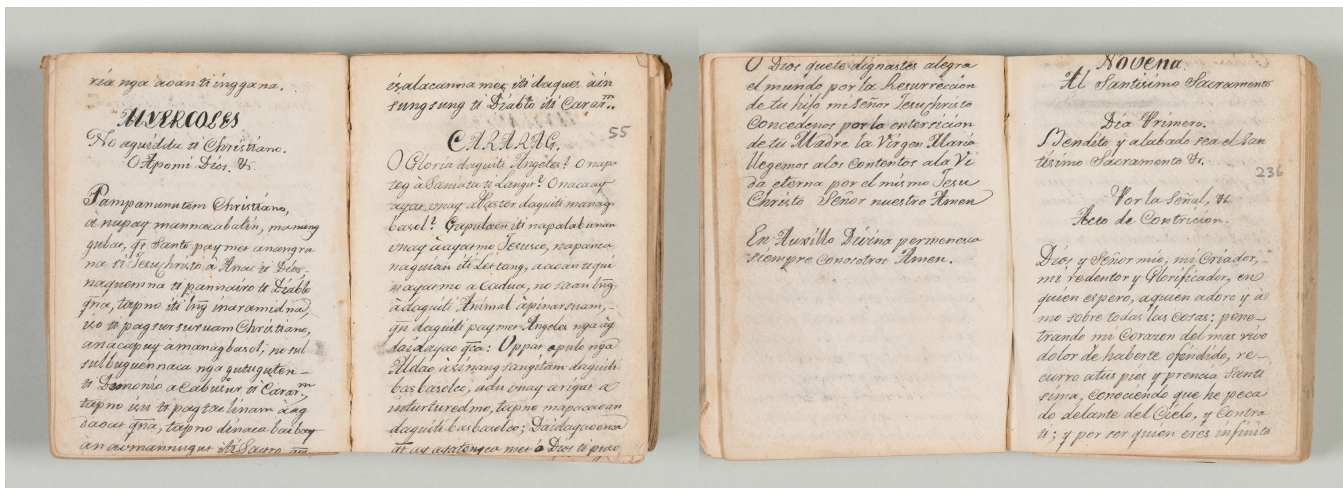 ria nga aoan ti inggana.
MIERCOLES
No aguiddu ti Christiano.
O Apomi Dios. &.
Pampanunutem Christiano,
à nupay mannacabalin, manung
gubat, qt Santo pay met
na ti Jesuchristo a Anac ti Dios,
naquemna ti pannairo ti Diablo
qña, tapno iti inaramidna,
ti pagsursuruam Christiano,
anacapuy à managbasol; no sul
sulbuguennaca nga gutuguten
ti Demonio a Cabusur ti Carar.m
tapno isu ti pagtaelinam à ag
saout qña, tapno dinaca baibay
iti Sacro
isalacanna met iti daques à ain
sungsung ti Diablo iti Carar.m
CARARAG.
55
O Gloria daguiti Angeles! O napa
teg à Saniata ti Langit! O nacaay
ayat unay a Pastor daguiti manag
basol! Gapu iti napalalunan
unay à ayatmo Jesusco,
naguian iti let-ang, aoan ti qui
nayatmo a Cadua, no saan
à daguiti Animal
qn daguiti pay met Angeles nga ag
daidayao qca: Uppat apulo nga
Aldao
basbasolco, adu unay a rigat a
inturturedmo, tapno mapacaoan
daguiti basbasolco; Daidayaoenca
met ô Dios ti
O Dios quete dignastes alegra
el mundo por la Resurrecion
de tu hijo mi señor Jesuchristo
Concedenos por la entersicion
de tu Madre la Virgen Maria
llegemos alos Contentos ala Vi
da eterna por el mismo Jesu
Christo Señor nuestro Amen
En Auxillo Divina permenesca
siempre Conosotros Amen.
Novena.
Al Santisimo Sacramento
Dia Primero.
Bendito y alabado sea el San
tisimo Sacramento &.
236
Por la Señal, &.
Acto de Contricion.
Dios y Señor mio, mi Criador,
mi redentor y Glorificador, en
quien espero, aquien adoro y a
mo sobre todas las Cosas: pene-
trando mi Corazon del mas vivo
dolor de haberte ofendido, re-
curro atus pies y precia Santi
sima, Conociendo que he peca
do delante del Cielo, y Contra
ti; y por ser quien eres infinita